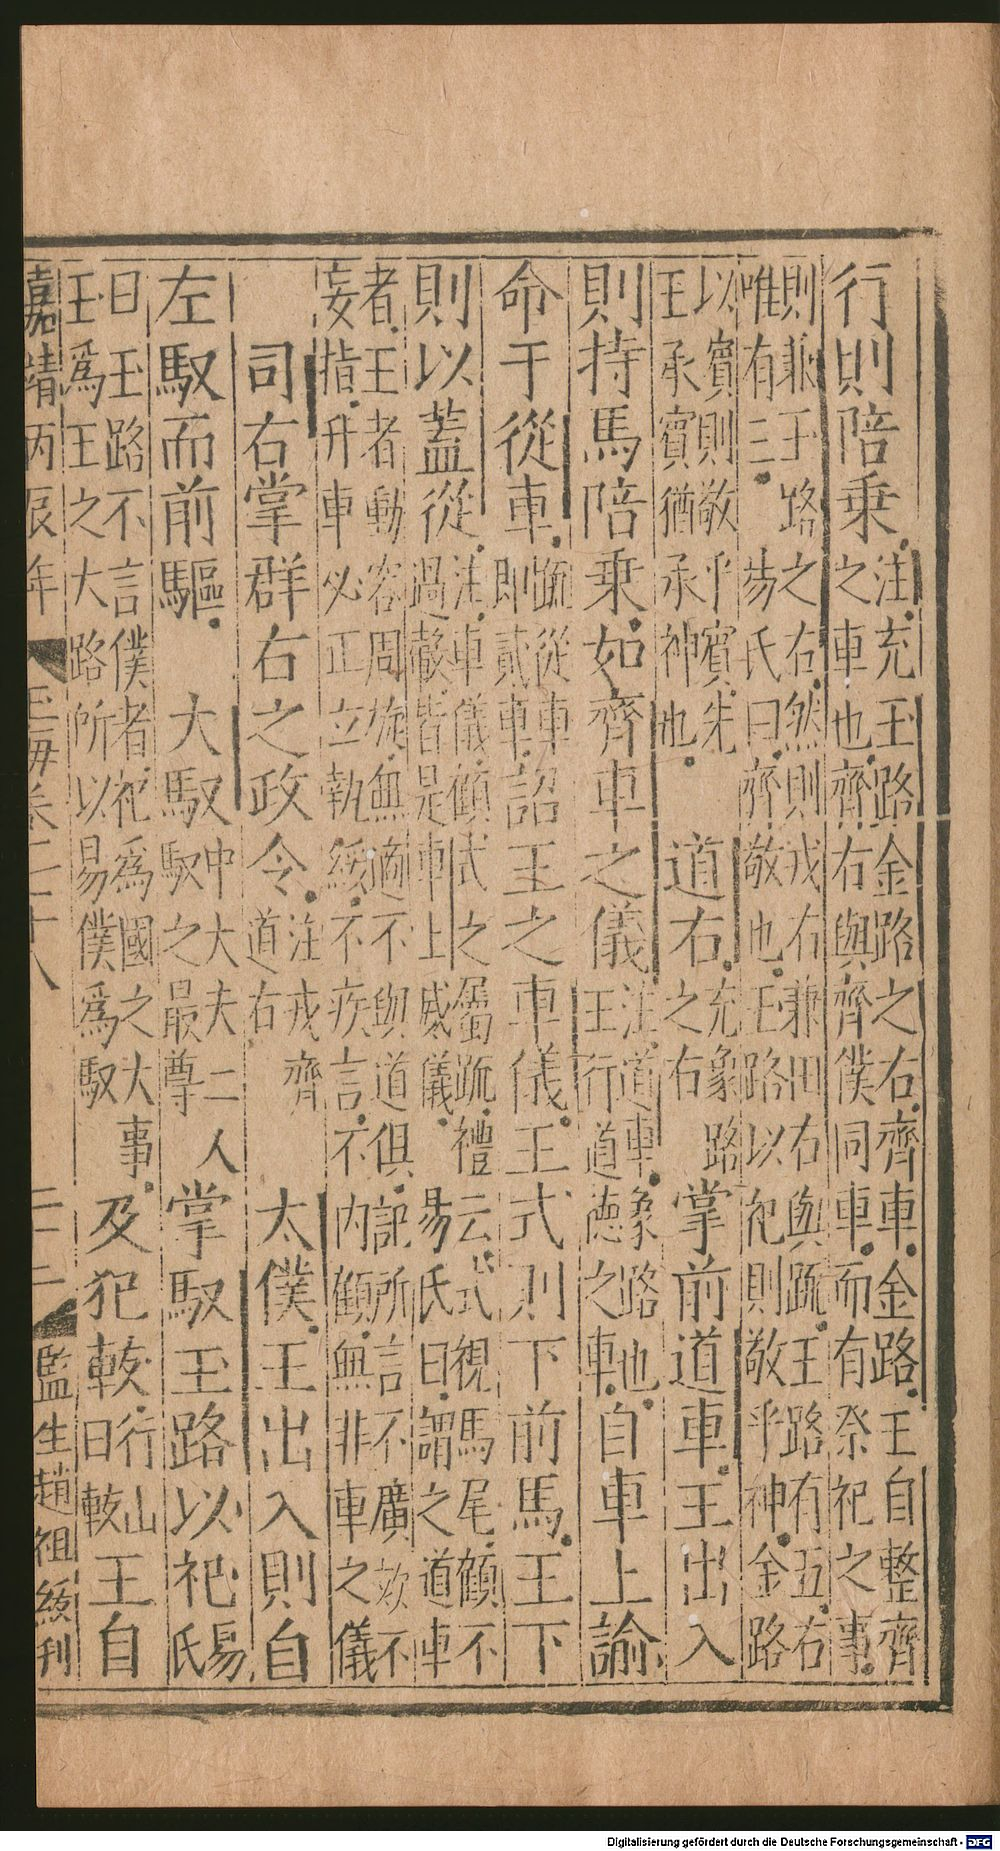 行則陪乘注充玉路金路之右齊車金路王自整齊
之車也齊右與齊僕同車而有祭祀之事
則兼玉路之右然則戎右兼田右與䟽王路有五右
唯有三昜氏曰齊敬也玉路以祀則敬乎神金路
以賓則敬乎賓先
王承賓猶承神也 道右充象路之右掌前道車王出入
則持馬陪乘如齊車之儀注道車象路也王行道德之車自車上諭
命于從車䟽從車即貳車詔王之車儀王式則下前馬王下
則以蓋從注車儀顧式之屬䟽禮云式視馬尾顧不
過轂皆是車上威儀昜氏曰謂之道車
者王者動容周旋無適不與道俱記所言不廣欬不
妄指升車必正立執綏不疾言不內顧無非車之儀
司右掌群右之政令注戎齊道右 太僕王出入則自
左馭而前驅 大馭中大夫二人馭之最尊掌馭玉路以祀昜氏
曰玉路不言僕者祀爲國之大事
玉爲王之大路所以易僕爲馭 及犯軷行山曰軷王自
嘉靖丙辰年 卷二十八 二十二 監生趙祖綬刊
Digitalisierung gefördert durch die Deutsche Forschungsgemeinschaft - DFG